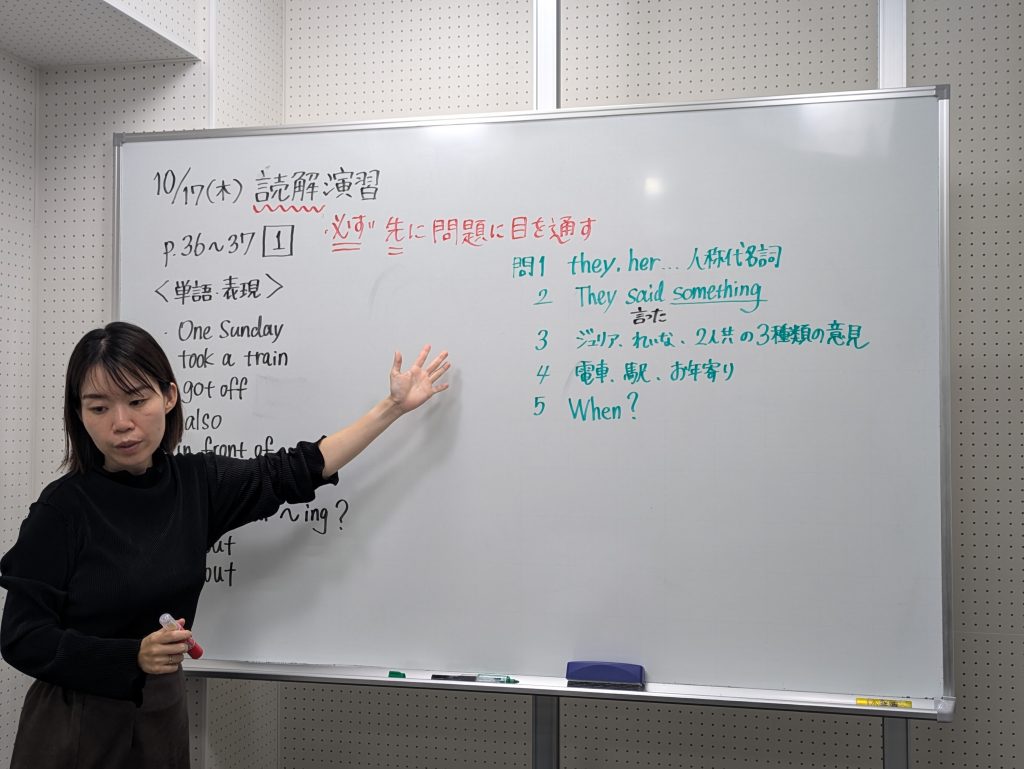 10/17(木) 読解演習
p.36~37 1
・必ず 先に問題に目を通す
<単語・表現>
・One Sunday
took a train
got off
also
in front of
~ing?
out
out
問1 they, her... 人称代名詞
2 They said something
言った
3 ジュリア、れいな、2人共の3種類の意見
4 電車、駅、お年寄り
5 When?